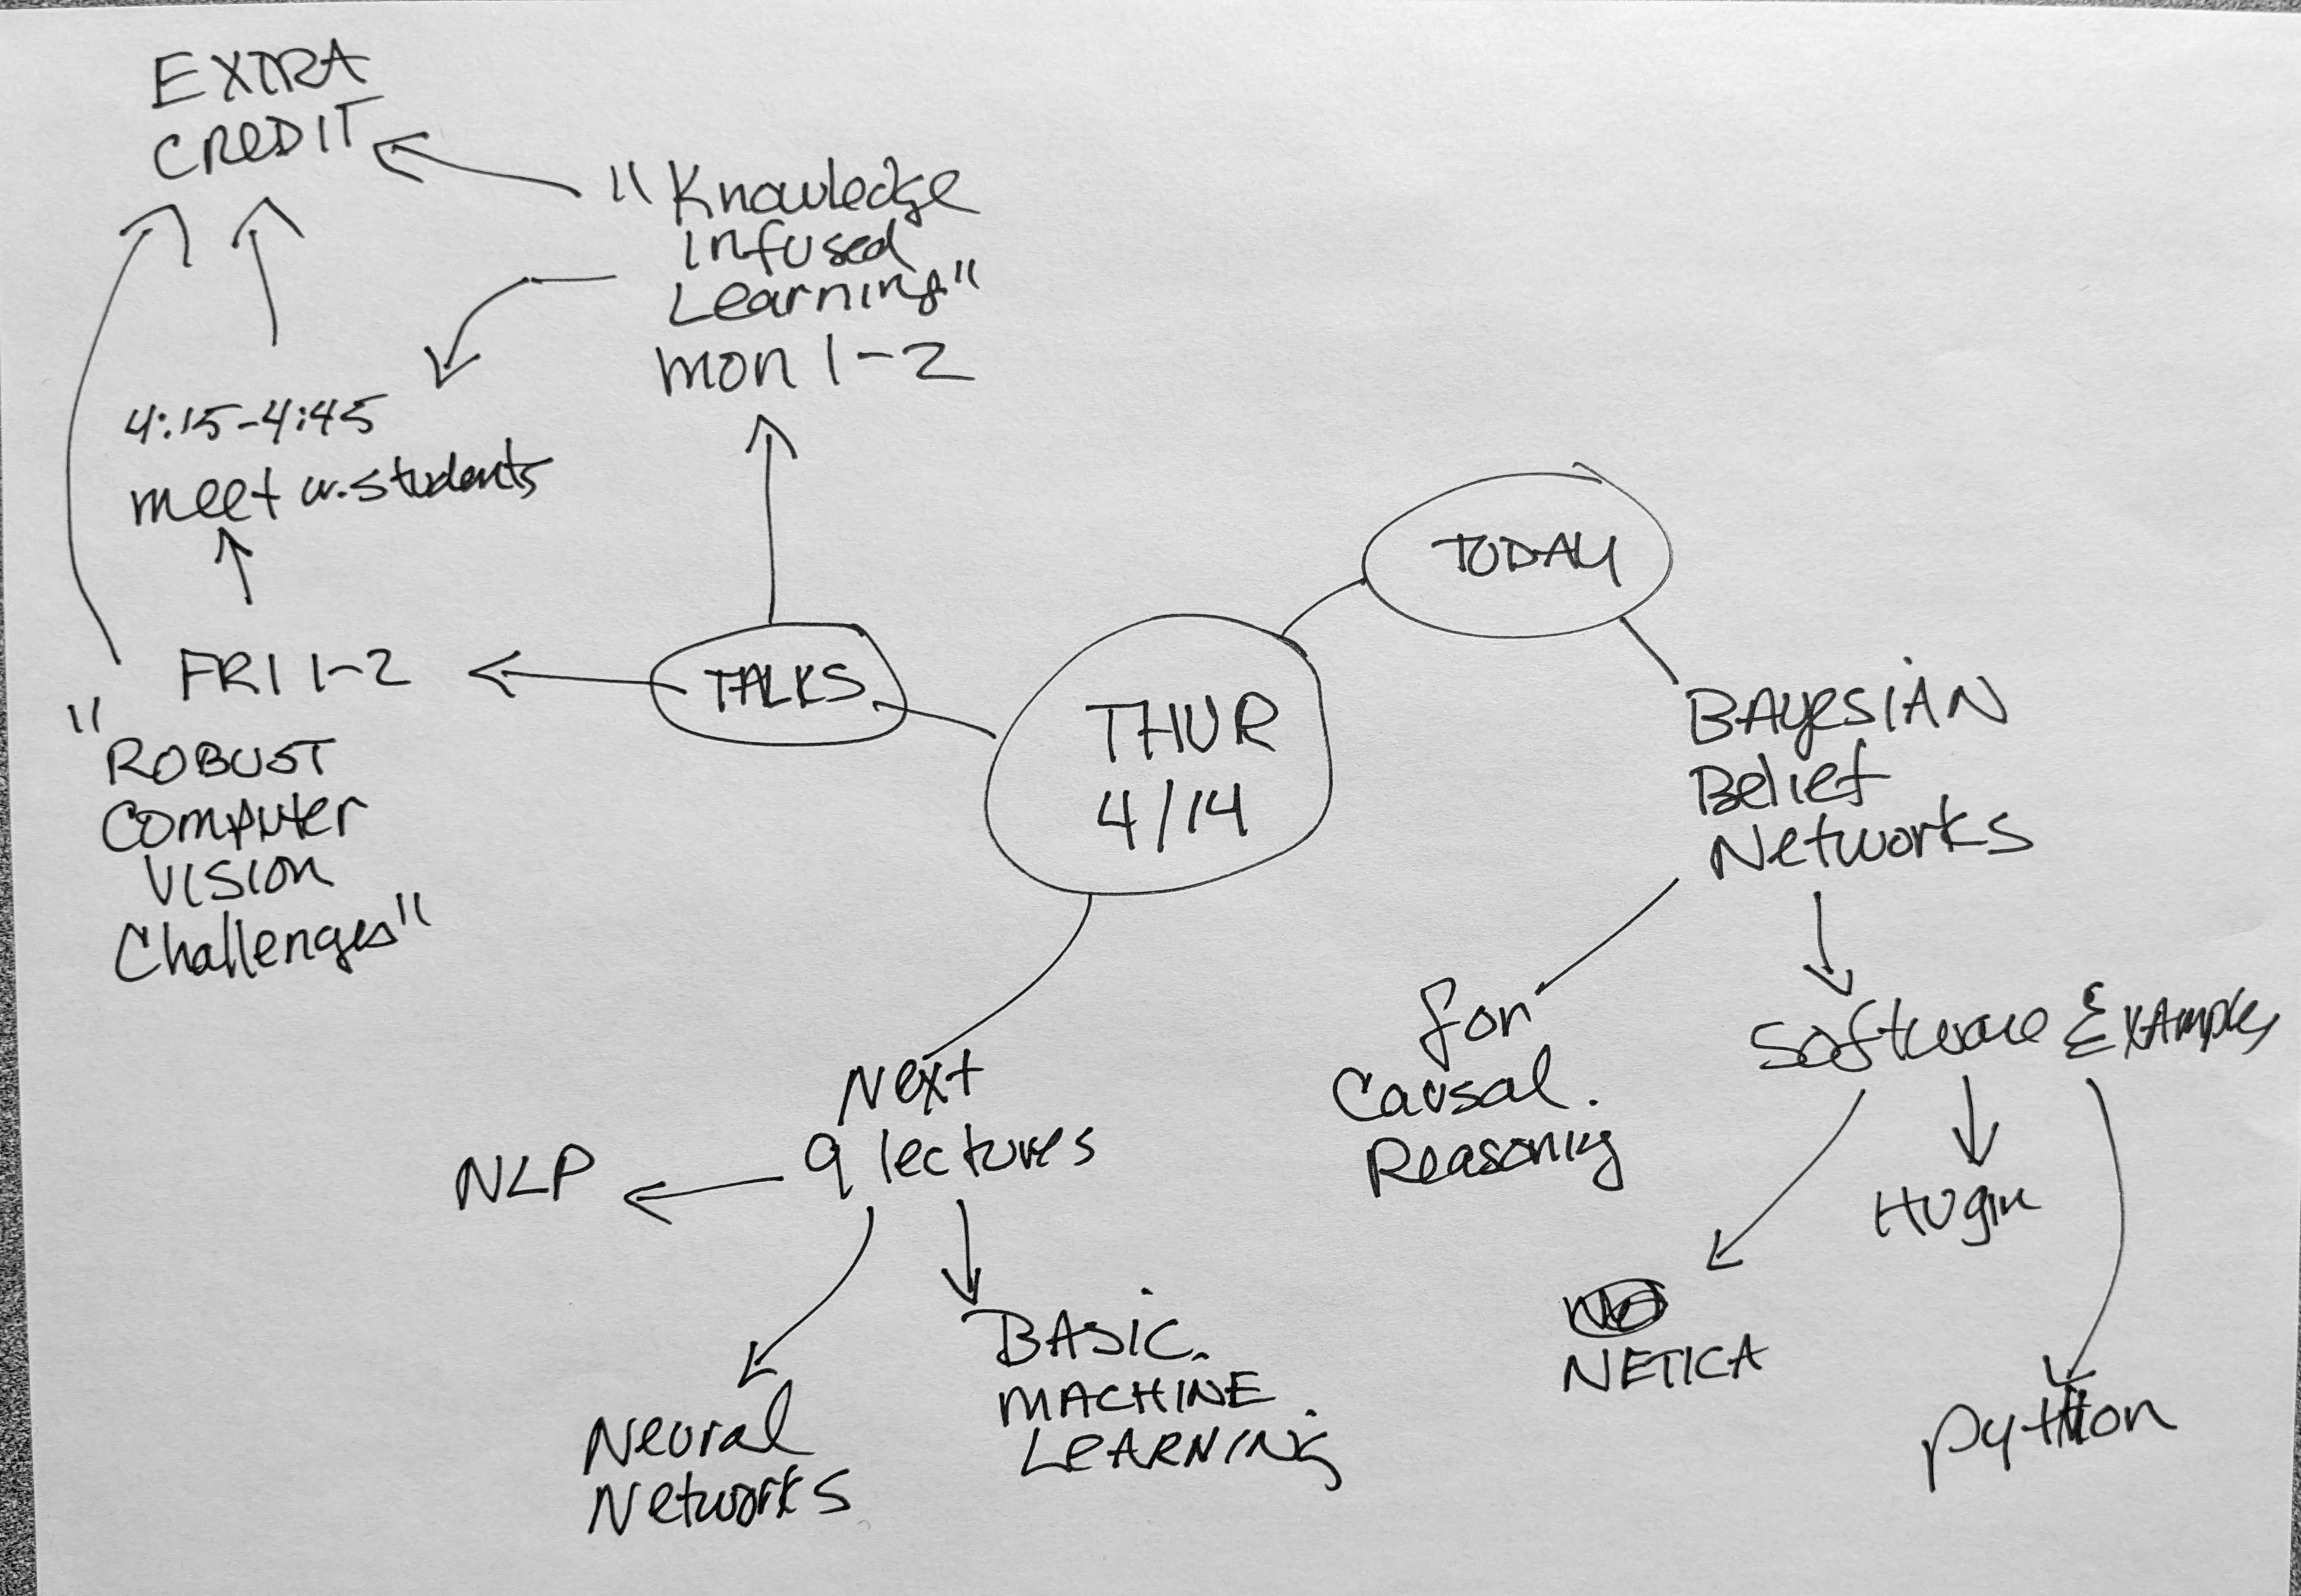 EXTRA
CREDIT
"Knowledge
Infused
Learning"
mon 1-2
4:15-4:45
meet w. students
FRI 1-2
"ROBUST
Computer
Vision
Challenges"
TALKS
THUR
4/14
TODAY
BAyesIAN
Belief
Networks
for
Causal.
Reasoning
Software Examples
Hugin
NETICA
python
Next
9 lectures
NLP
Neural
Networks
BASIC.
MACHINE
LeARNING